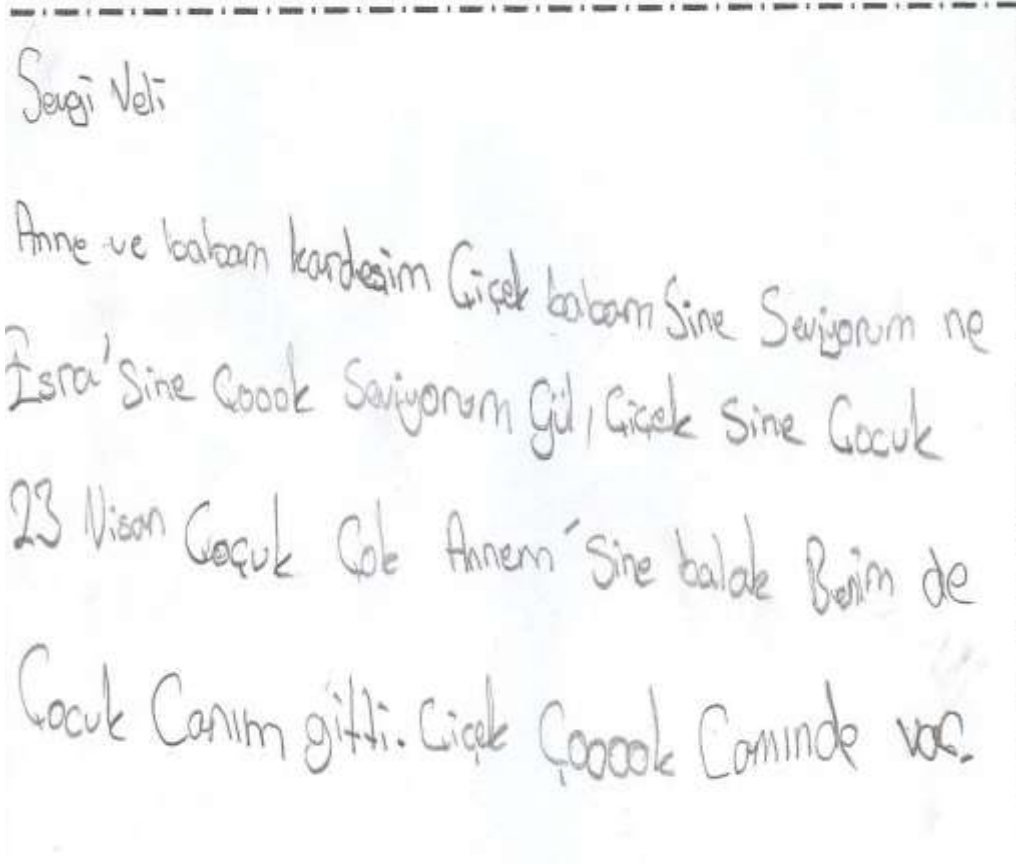 Sevgi Veli
Anne ve babam kardeşim Çiçek babam Sine Seviyorum ne
Esra' Sine Çoook Seviyorum Gül, Çiçek Sine Çocuk
23 Nisan Çoçuk Çok Annem' Sine balak Benim de
Çocuk Canım gitti. Çiçek Çooook Caminde var.